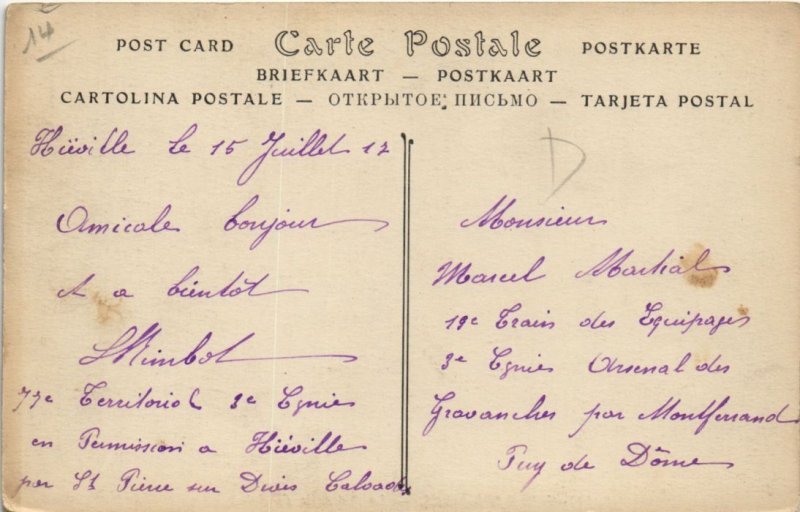 14
POST CARD Carte Postale POSTKARTE
BRIEFKAART — POSTKAART
CARTOLINA POSTALE — ОТКРЫТОЕ ПИСЬМО — TARJETA POSTAL
Hiéville le 15 Juillet 17
Amicale bonjour
et a bientôt
77e Territorial 3e Cgnie
en Permission a Hiéville
par St Pierre sur Dives Calvados
D
Monsieur
Marcel Martial
19e Train des Equipages
3e Cgnie Arsenal des
Gravanches par Montferrand
Puy de Dôme